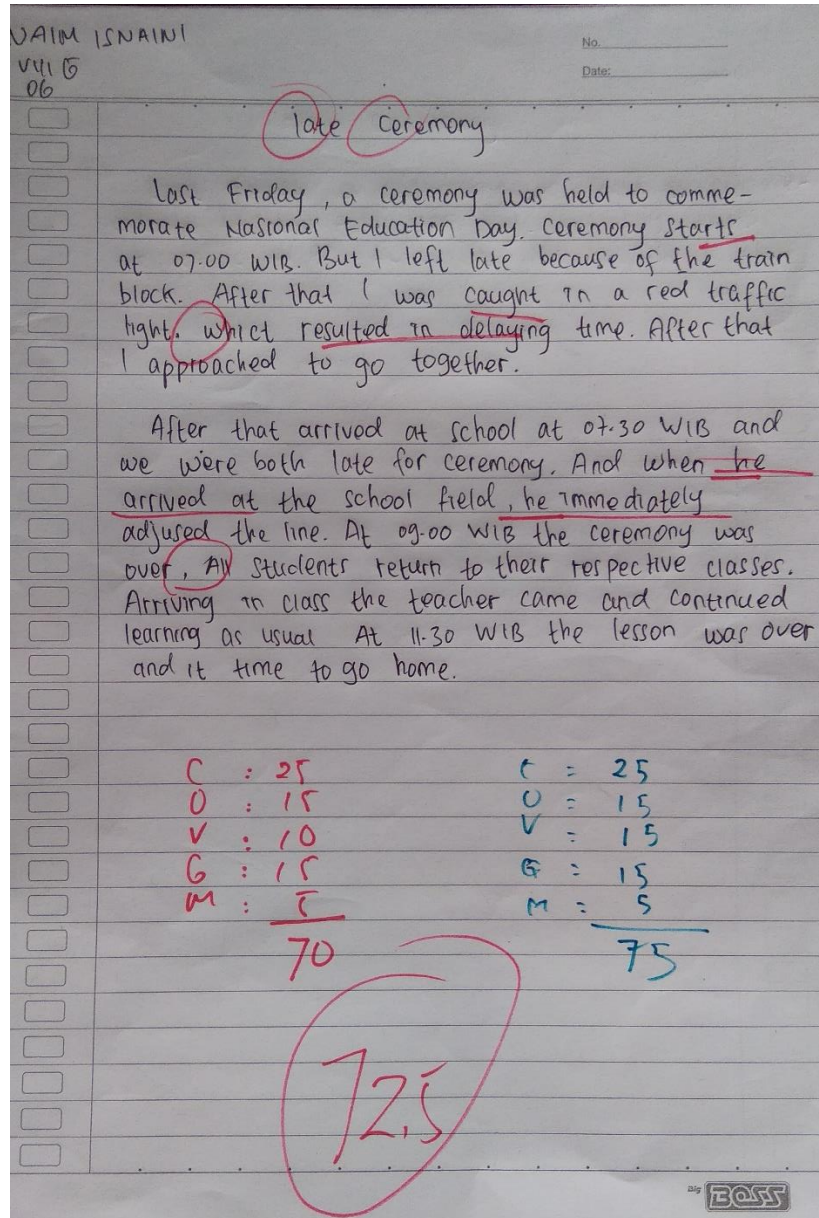 NAIM ISNAINI
VIII G
06
No.
Date:
late Ceremony
Last Friday, a ceremony was held to comme-
morate Nasional Education Day. Ceremony starts
at 07.00 WIB. But I left late because of the train
block. After that I was caught in a red traffic
light. which resulted in delaying time. After that
I approached to go together.
After that arrived at school at 07.30 WIB and
we were both late for ceremony. And when he
arrived at the school field, he immediately
adjused the line. At 09.00 WIB the ceremony was
over, All students return to their respective classes.
Arriving in class the teacher came and continued
learning as usual At 11.30 WIB the lesson was over
and it time to go home.
C : 25 C = 25
O : 15 O = 15
V : 10 V = 15
G : 15 G = 15
M : 5 M = 5
70 75
72,5
Big BOSS